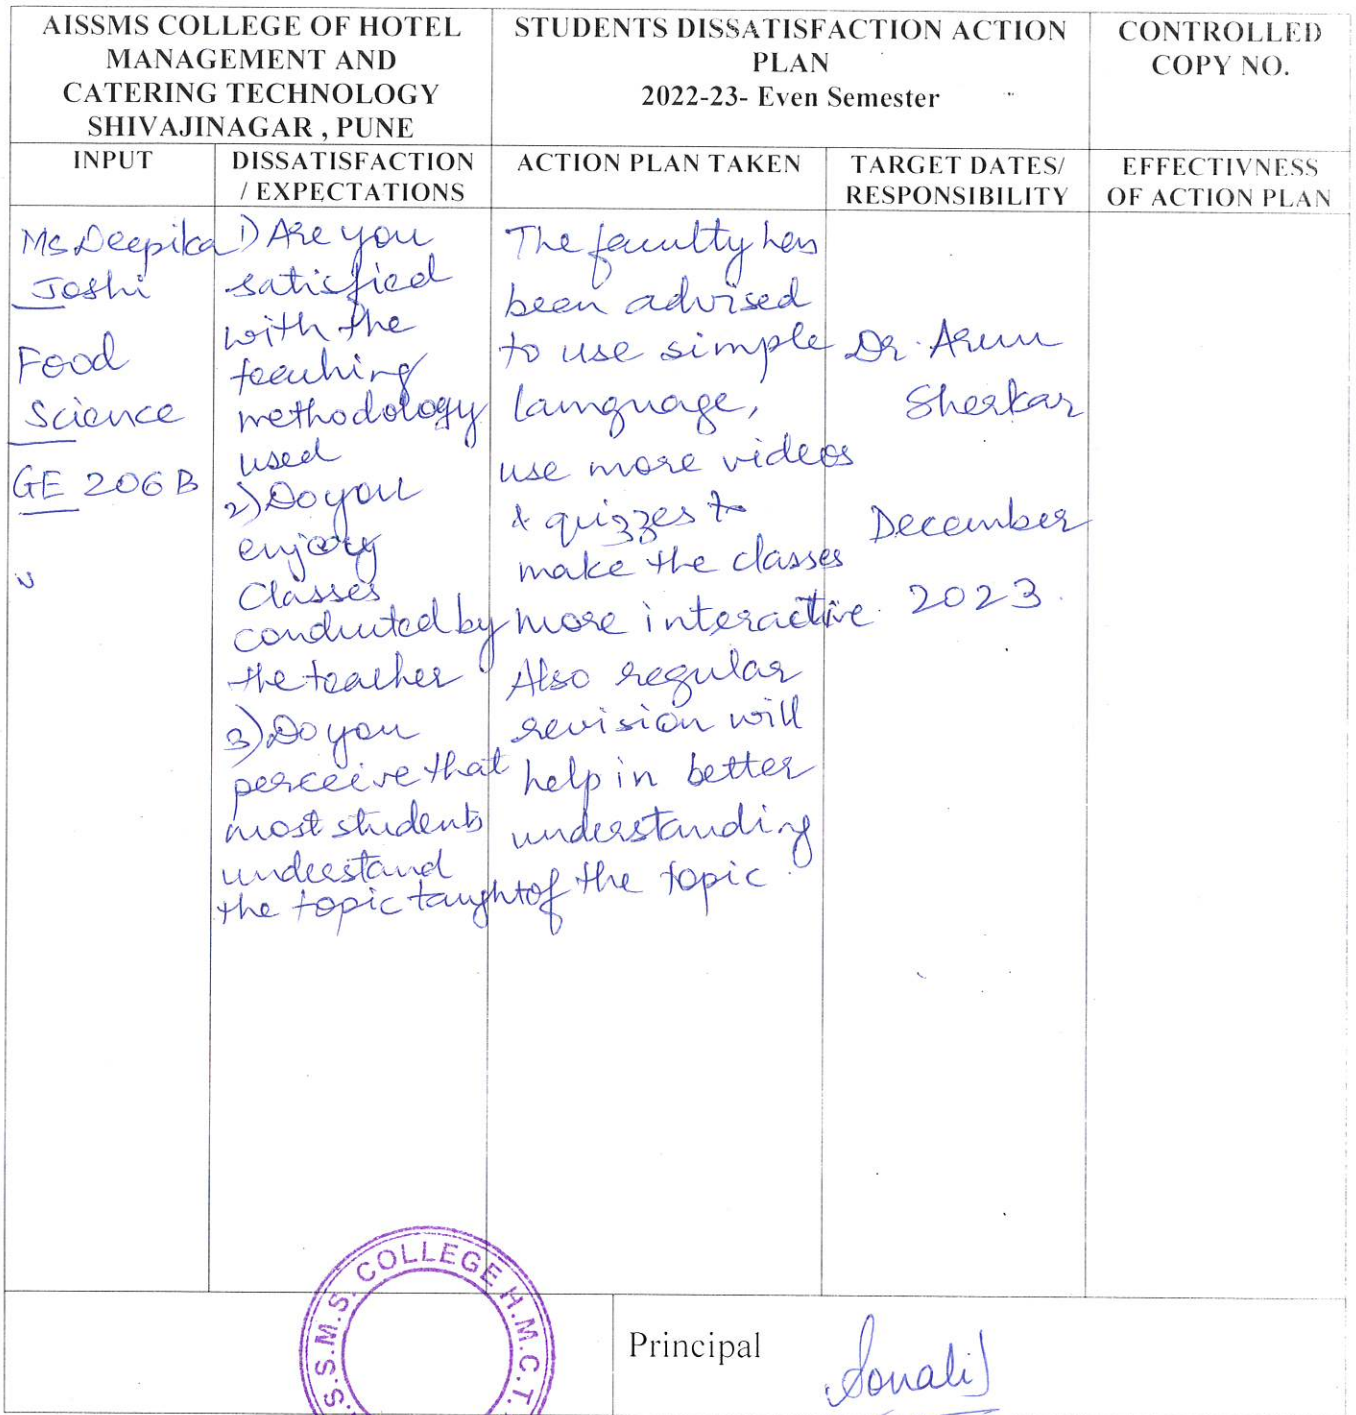 AISSMS COLLEGE OF HOTEL
MANAGEMENT AND
CATERING TECHNOLOGY
SHIVAJINAGAR , PUNE
STUDENTS DISSATISFACTION ACTION
PLAN
2022-23- Even Semester
CONTROLLED
COPY NO.
INPUT
DISSATISFACTION
/ EXPECTATIONS
ACTION PLAN TAKEN
TARGET DATES/
RESPONSIBILITY
EFFECTIVNESS
OF ACTION PLAN
Ms Deepika
Joshi
Food
Science
GE 206B
1) Are you
satisfied
with the
teaching
methodology
used
2) Do you
enjoy
Classes
conducted by
the teacher
3) Do you
perceive that
most students
understand
the topic taught
The faculty has
been advised
to use simple
language,
use more videos
& quizzes to
make the classes
more interactive.
Also regular
revision will
help in better
understanding
of the topic.
Dr. Arun
Sherkar
December
2023.
S.S.M.S. COLLEGE H.M.C.T.
Principal
Sonali J